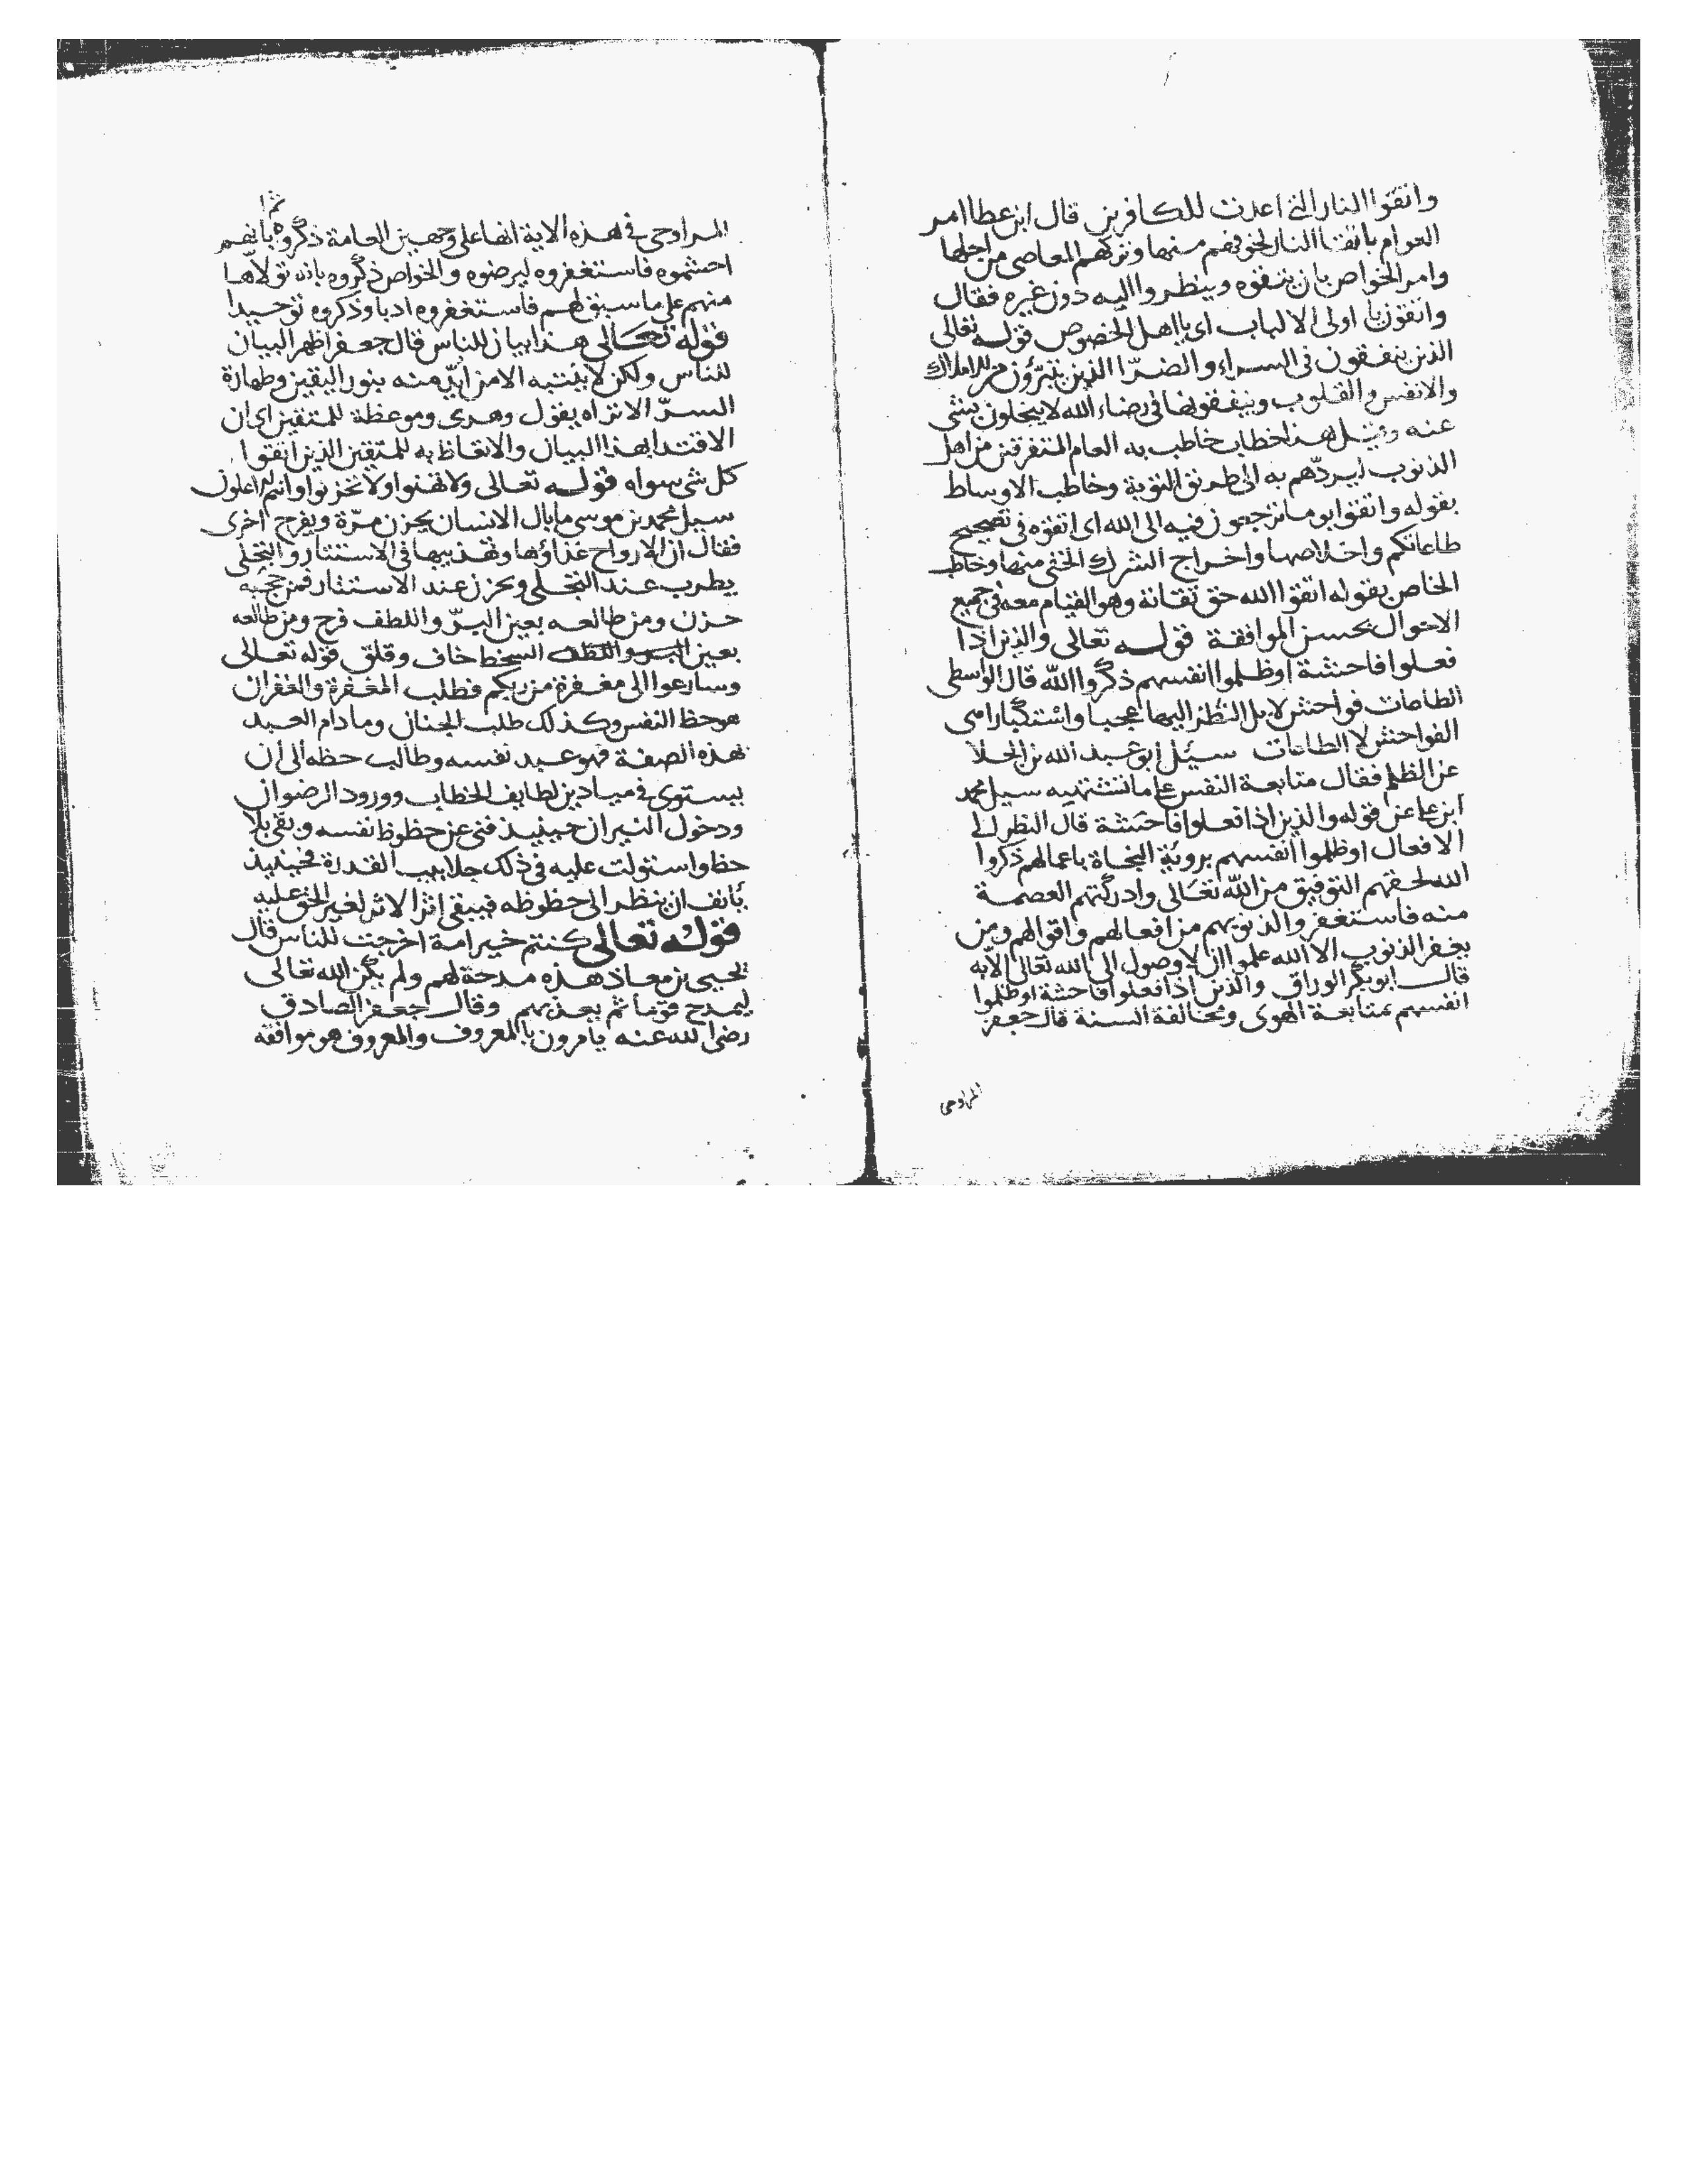 واتقوا النار التي اعدت للكافرين قال ابن عطا امر
العوام باتقا النار لخوفهم منها وتركهم المعاصي من اجلها
وامر الخواص بان يتقوه وينظروا اليه دون غيره فقال
واتقون يا اولى الالباب اى يا اهل الخصوص قوله تعالى
الذين ينفقون في السراء والضرّا الذين يتبرّون من الاملاك
والانفس والقلوب وينفقونها في رضاء الله لا يبخلون بشى
عنه وقيل هذا خطاب خاطب به العام المتفرقين من اهل
الذنوب ليردّهم به الى طريق التوبة وخاطب الاوساط
بقوله واتقوا يوما ترجعون فيه الى الله اى اتقوه في تصحيح
طاعاتكم واخلاصها واخراج الشرك الخفى منها وخاطب
الخاص بقوله اتقوا الله حق تقاته وهو القيام معه في جميع
الاحوال بحسن الموافقة قوله تعالى والذين اذا
فعلوا فاحشة او ظلموا انفسهم ذكروا الله قال الواسطى
الطاعات فواحش لا بل النظر اليها عجبا واستكبارا هى
الفواحش لا الطاعات سيل ابو عبد الله بن الجلا
عن الظلم فقال متابعة النفس على ما تشتهيه سيل محمد
ابن على عن قوله والذين اذا فعلوا فاحشة قال النظر الى
الافعال او ظلموا انفسهم بروية النجاة باعمالهم ذكروا
الله لحقهم التوفيق من الله تعالى وادركتهم العصمة
منه فاستغفروا لذنوبهم من افعالهم واقوالهم ومن
يغفر الذنوب الا الله علموا ان لا وصول الى الله تعالى الا به
قال ابو بكر الوراق والذين اذا فعلوا فاحشة او ظلموا
انفسهم بمتابعة الهوى ومخالفة السنة قال جعفر
المراوحى
المراوحى في هذه الاية انها على وجهين العامة ذكروه بانهم
احتشموه فاستغفروه ليرضوه والخواص ذكروه بانه تولاها
منهم على ما سبق لهم فاستغفروه ادبا وذكروه توحيدا
قوله تعالى هذا بيان للناس قال جعفر اظهر البيان
للناس ولكن لا ينتبه الا من ايّد منه بنور اليقين وطهارة
السرّ الا تراه يقول وهدى وموعظة للمتقين اى ان
الاقتدا بهذا البيان والاتعاظ به للمتقين الذين اتقوا
كل شى سواه قوله تعالى ولا تهنوا ولا تحزنوا وانتم الاعلون
سيل محمد بن موسى ما بال الانسان يحزن مرّة ويفرح اخرى
فقال ان الارواح غذاؤها وتهذيبها في الاستتار والتجلى
يطرب عند التجلى ويحزن عند الاستتار فمن حجبه
حزن ومن طالعه بعين البرّ واللطف فرح ومن طالعه
بعين السخط خاف وقلق قوله تعالى
وسارعوا الى مغفرة من ربكم فطلب المغفرة والغفران
هو حظ النفس وكذلك طلب الجنان وما دام العبد
بهذه الصفة فهو عبد نفسه وطالب حظه الى ان
يستوى في ميادين لطايف الخطاب وورود الرضوان
ودخول النيران حينيذ فنى عن حظوظ نفسه وبقى بلا
حظ واستولت عليه في ذلك جلابيب القدرة فحينيذ
يانف ان ينظر الى حظوظه فيبقى اثر الاثر لغير الحق عليه
قوله تعالى كنتم خير امة اخرجت للناس قال
يحيى بن معاذ هذه مدحة لهم ولم يكن الله تعالى
ليمدح قوما ثم يعذبهم وقال جعفر الصادق
رضى الله عنه يامرون بالمعروف والمعروف هو موافقه